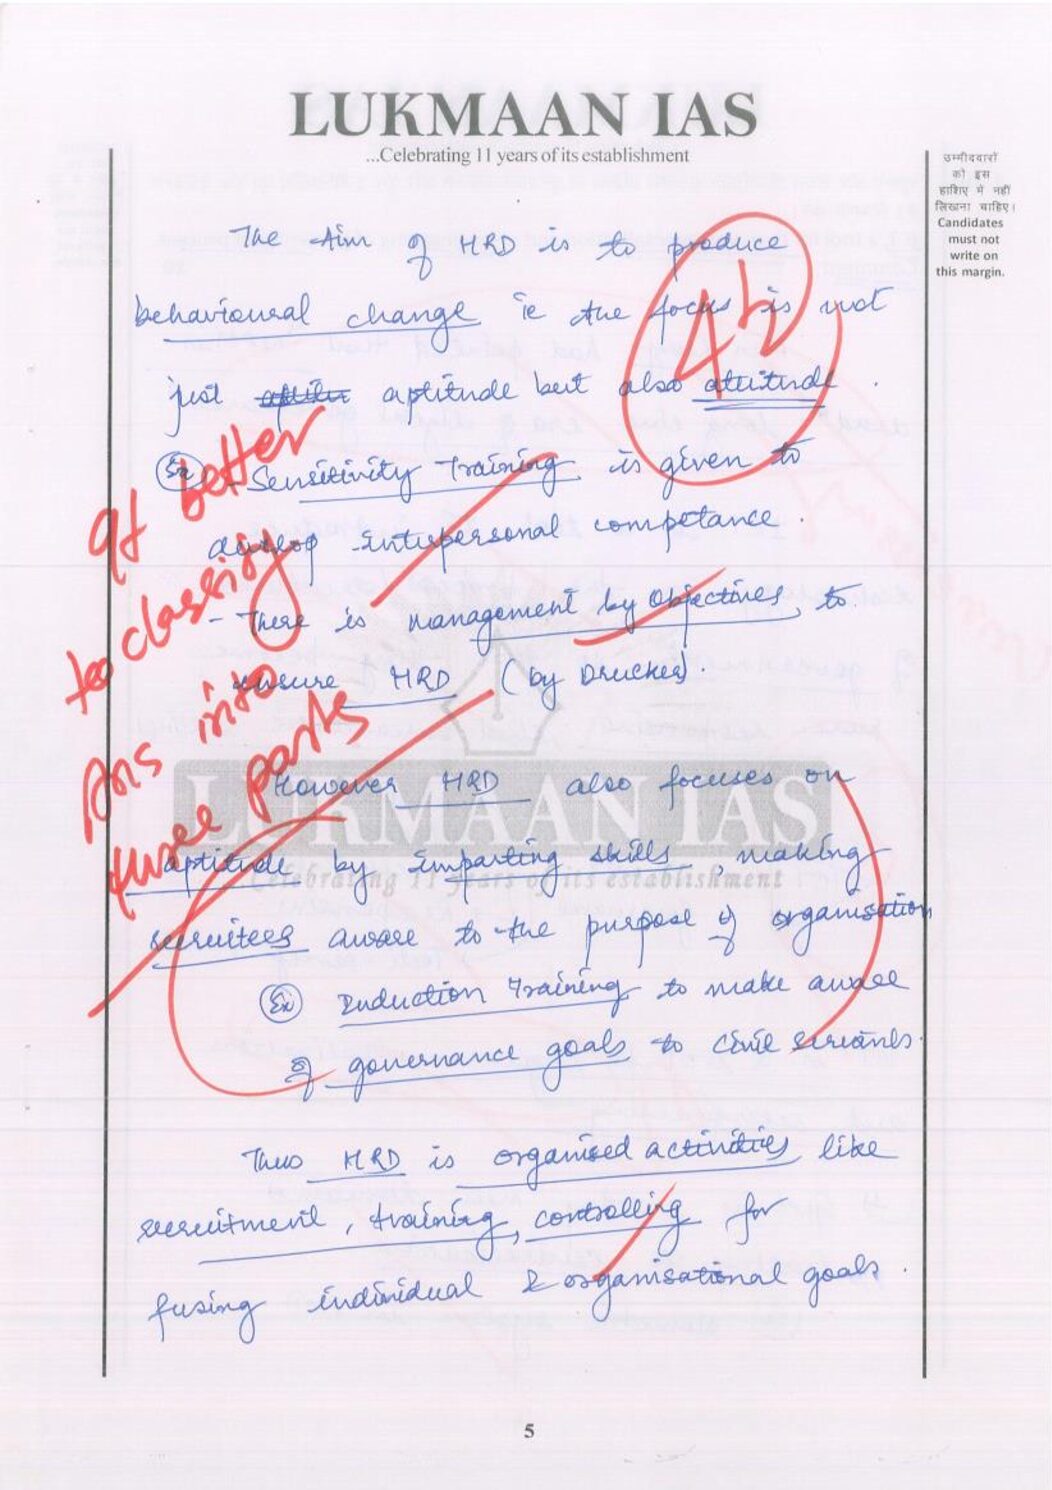 LUKMAAN IAS
...Celebrating 11 years of its establishment
उम्मीदवारों
को इस
हाशिए में नहीं
लिखना चाहिए।
Candidates
must not
write on
this margin.
The Aim of HRD is to produce
behavioural change ie the focus is not
just aptitude but also attitude.
Ex - Sensitivity Training is given to
develop interpersonal competance.
- There is management by objectives, to
ensure HRD (by Drucker).
However HRD also focuses on
aptitude by imparting skills, making
recruitees aware to the purpose of organisation
Ex Induction Training to make aware
of governance goals to civil servants.
Thus HRD is organised activities like
recruitment, training, controlling for
fusing individual & organisational goals.
better
to classify
Ans into
three parts
LUKMAAN IAS
Celebrating 11 years of its establishment
5